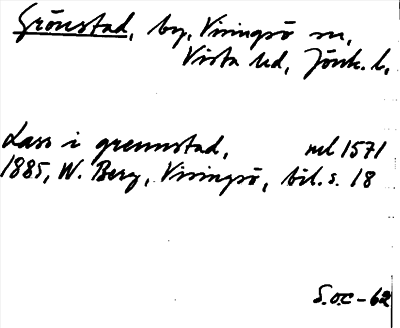 Grönstad, by, Visingsö sn,
Vista hd, Jönk. l.
Lass i grennstad, ml 1571
1885, W. Berg, Visingsö, bil. s. 18
S.O.C-62